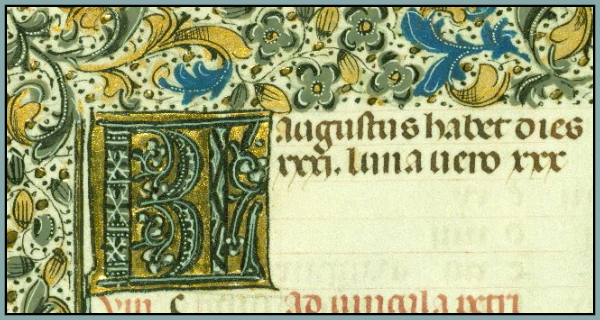 KL Augustus habet dies
xxxi. luna uero xxx
viii c ad uincula petri